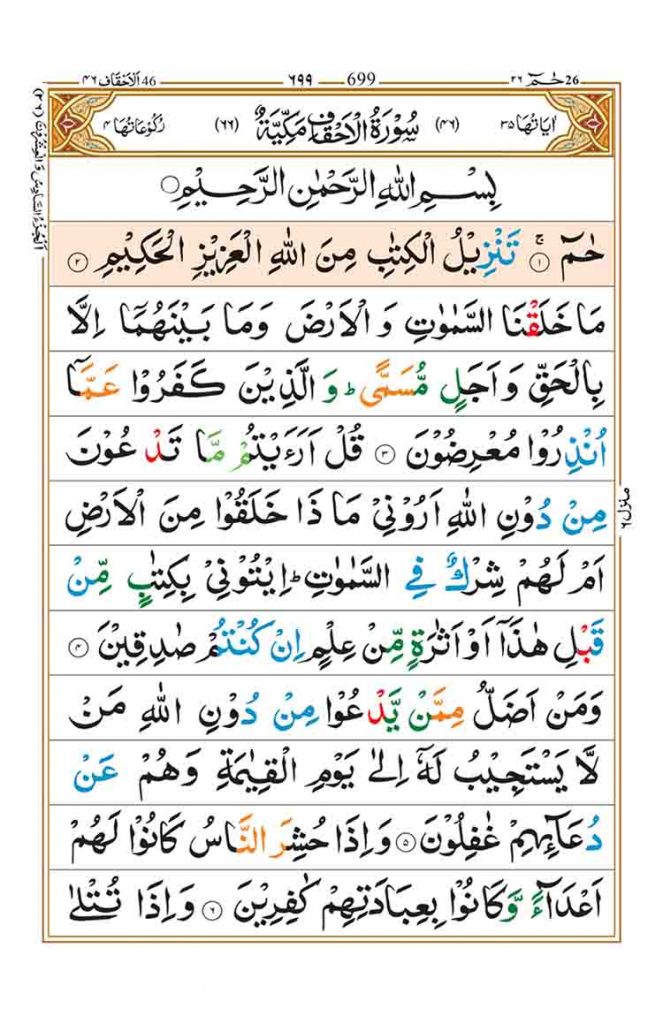 ٤٦ الاحقاف 46 ٦٩٩ 699 ٢٦ حٰمٓ 26
اٰیَاتُهَا ٣٥ (٤٦) سُوْرَةُ الْاَحْقَافِ مَكِّیَّةٌ (٦٦) رُكُوْعَاتُهَا ٤
بِسْمِ اللّٰهِ الرَّحْمٰنِ الرَّحِیْمِ
حٰمٓ ۚ ١ تَنْزِیْلُ الْكِتٰبِ مِنَ اللّٰهِ الْعَزِیْزِ الْحَكِیْمِ ٢
مَا خَلَقْنَا السَّمٰوٰتِ وَ الْاَرْضَ وَمَا بَیْنَهُمَاۤ اِلَّا
بِالْحَقِّ وَ اَجَلٍ مُّسَمًّی ؕ وَ الَّذِیْنَ كَفَرُوْا عَمَّاۤ
اُنْذِرُوْا مُعْرِضُوْنَ ٣ قُلْ اَرَءَیْتُمْ مَّا تَدْعُوْنَ
مِنْ دُوْنِ اللّٰهِ اَرُوْنِیْ مَا ذَا خَلَقُوْا مِنَ الْاَرْضِ
اَمْ لَهُمْ شِرْكٌ فِی السَّمٰوٰتِ ؕ اِیْتُوْنِیْ بِكِتٰبٍ مِّنْ
قَبْلِ هٰذَاۤ اَوْ اَثٰرَةٍ مِّنْ عِلْمٍ اِنْ كُنْتُمْ صٰدِقِیْنَ ٤
وَمَنْ اَضَلُّ مِمَّنْ یَّدْعُوْا مِنْ دُوْنِ اللّٰهِ مَنْ
لَّا یَسْتَجِیْبُ لَهٗۤ اِلٰی یَوْمِ الْقِیٰمَةِ وَهُمْ عَنْ
دُعَآىِٕهِمْ غٰفِلُوْنَ ٥ وَ اِذَا حُشِرَ النَّاسُ كَانُوْا لَهُمْ
اَعْدَآءً وَّ كَانُوْا بِعِبَادَتِهِمْ كٰفِرِیْنَ ٦ وَ اِذَا تُتْلٰی
اَلْجُزْءُ السَّادِسُ وَ الْعِشْرُوْنَ (٢٦)
منزل ٦